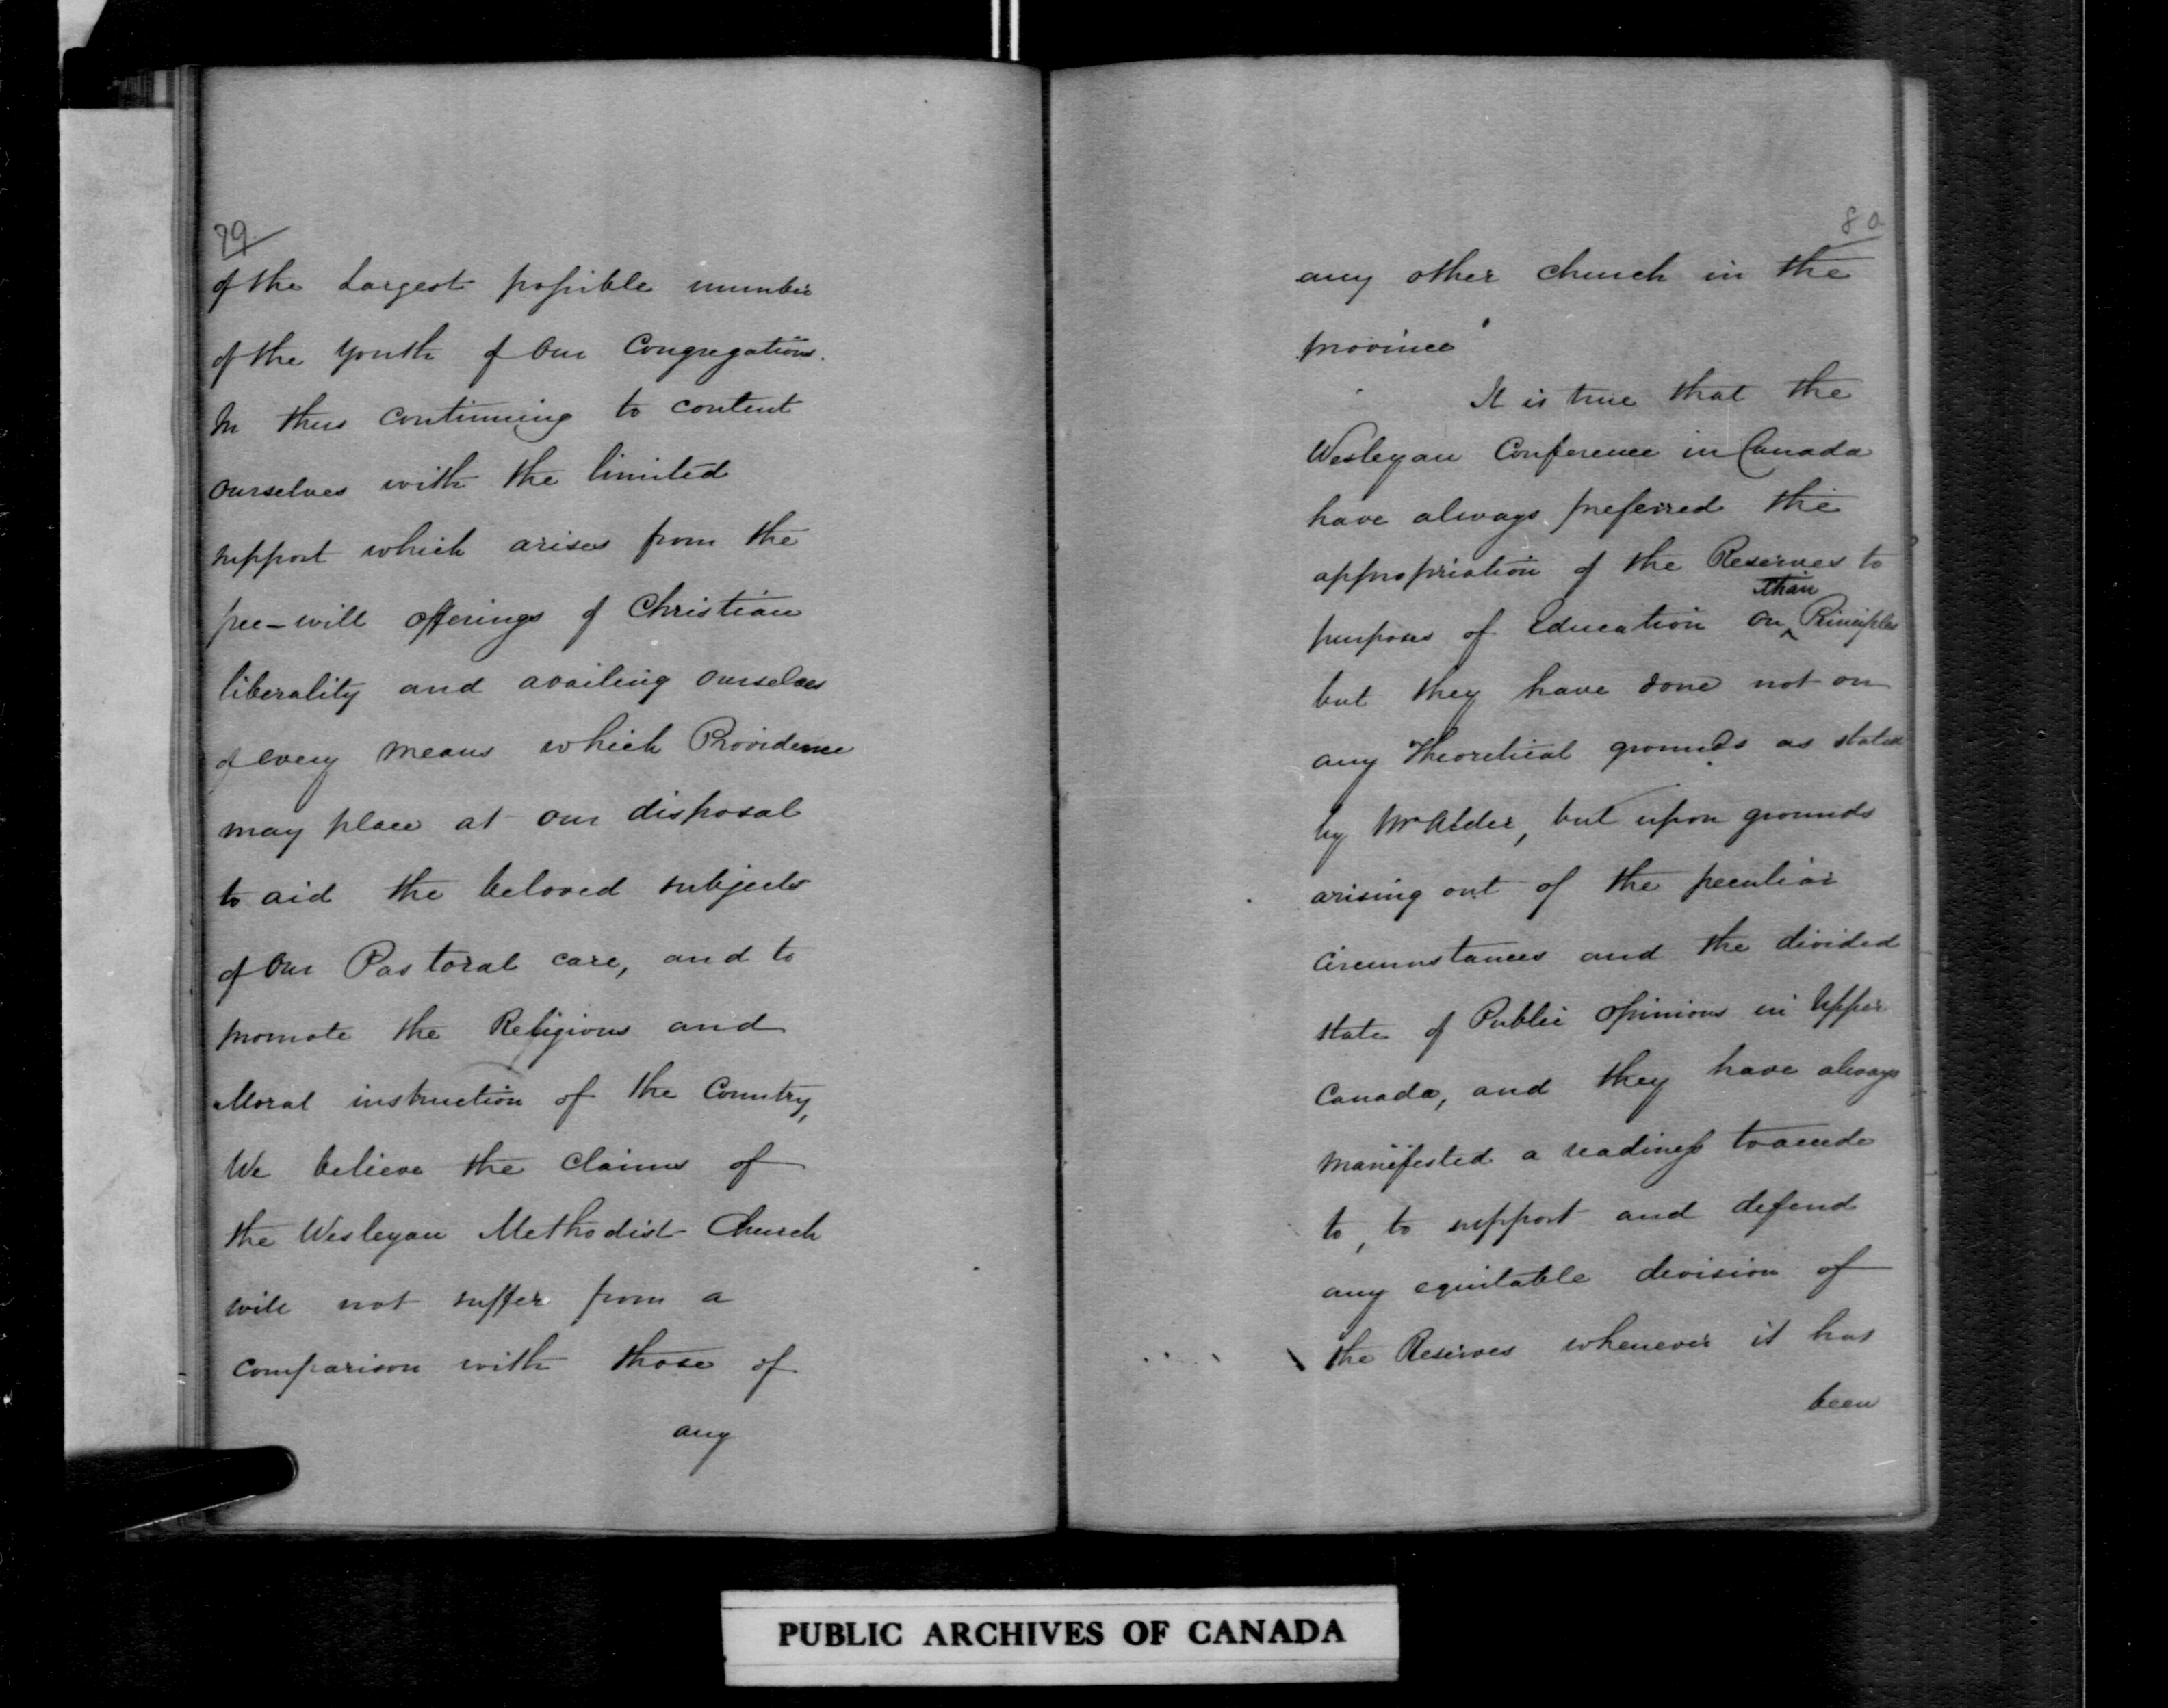 79
of the Largest possible number
of the Youth of Our Congregations.
In thus continuing to content
ourselves with the limited
support which arises from the
free-will offerings of Christian
liberality and availing ourselves
of every means which Providence
may place at our disposal
to aid the beloved subjects
of Our Pastoral care, and to
promote the Religious and
Moral instruction of the Country,
We believe the claims of
the Wesleyan Methodist Church
will not suffer from a
comparison with those of
any
80
any other church in the
province
It is true that the
Wesleyan Conference in Canada
have always preferred the
appropriation of the Reserves to
than
purposes of Education on Principles
but they have done not on
any Theoretical grounds as stated
by Mr Alder, but upon grounds
arising out of the peculiar
circumstances and the divided
state of Public opinions in Upper
Canada, and they have always
manifested a readiness to accede
to, to support and defend
any equitable division of
the Reserves whenever it has
been
PUBLIC ARCHIVES OF CANADA